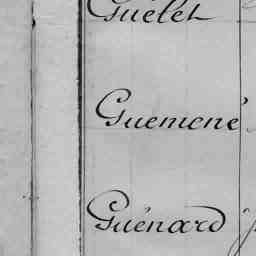 Guélet
Guemené
Guénard